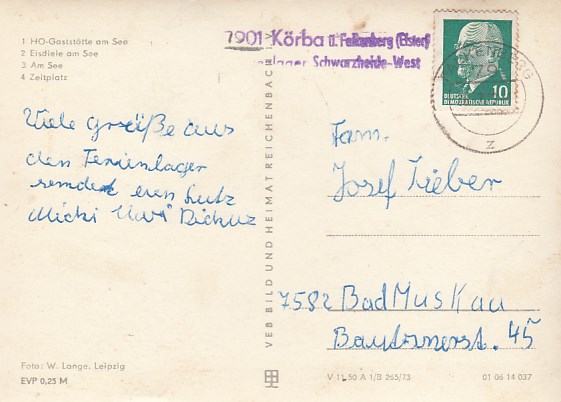 1 HO-Gaststätte am See
2 Eisdiele am See
3 Am See
4 Zeltplatz
7901 Körba ü. Falkenberg (Elster)
lager Schwarzheide-West
10
DEUTSCHE
DEMOKRATISCHE REPUBLIK
z
Viele Grüße aus
den Ferienlager
sendet euer Lutz
Micki Uwi
Fam.
Josef Lieber
7582 Bad Muskau
Bautznerst. 45
VEB BILD UND HEIMAT REICHENBACH
Foto: W. Lange, Leipzig
EVP 0,25 M
V 11 50 A 1/B 265/73
01 06 14 037